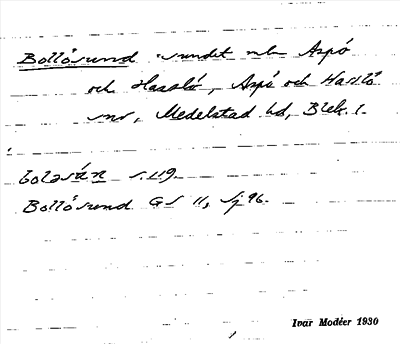 Bollösund sundet mln Aspö
och Hasslö, Aspö och Hasslö
snr, Medelstad hd, Blek. l.
boləsán s. 119.
Bollösund GS 11, Sj 96.
Ivar Modéer 1930